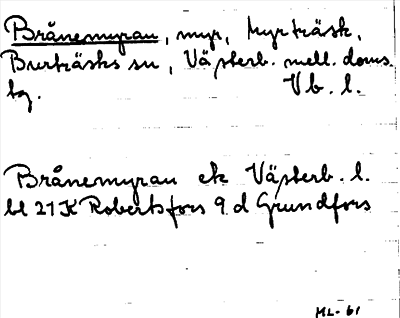 Brånemyran, myr, Myrträsk,
Burträsks sn, Västerb. mell. doms.
tg. Vb. l.
Brånemyran ek Västerb. l.
bl 21K Robertsfors 9 d Grundfors
ML-61